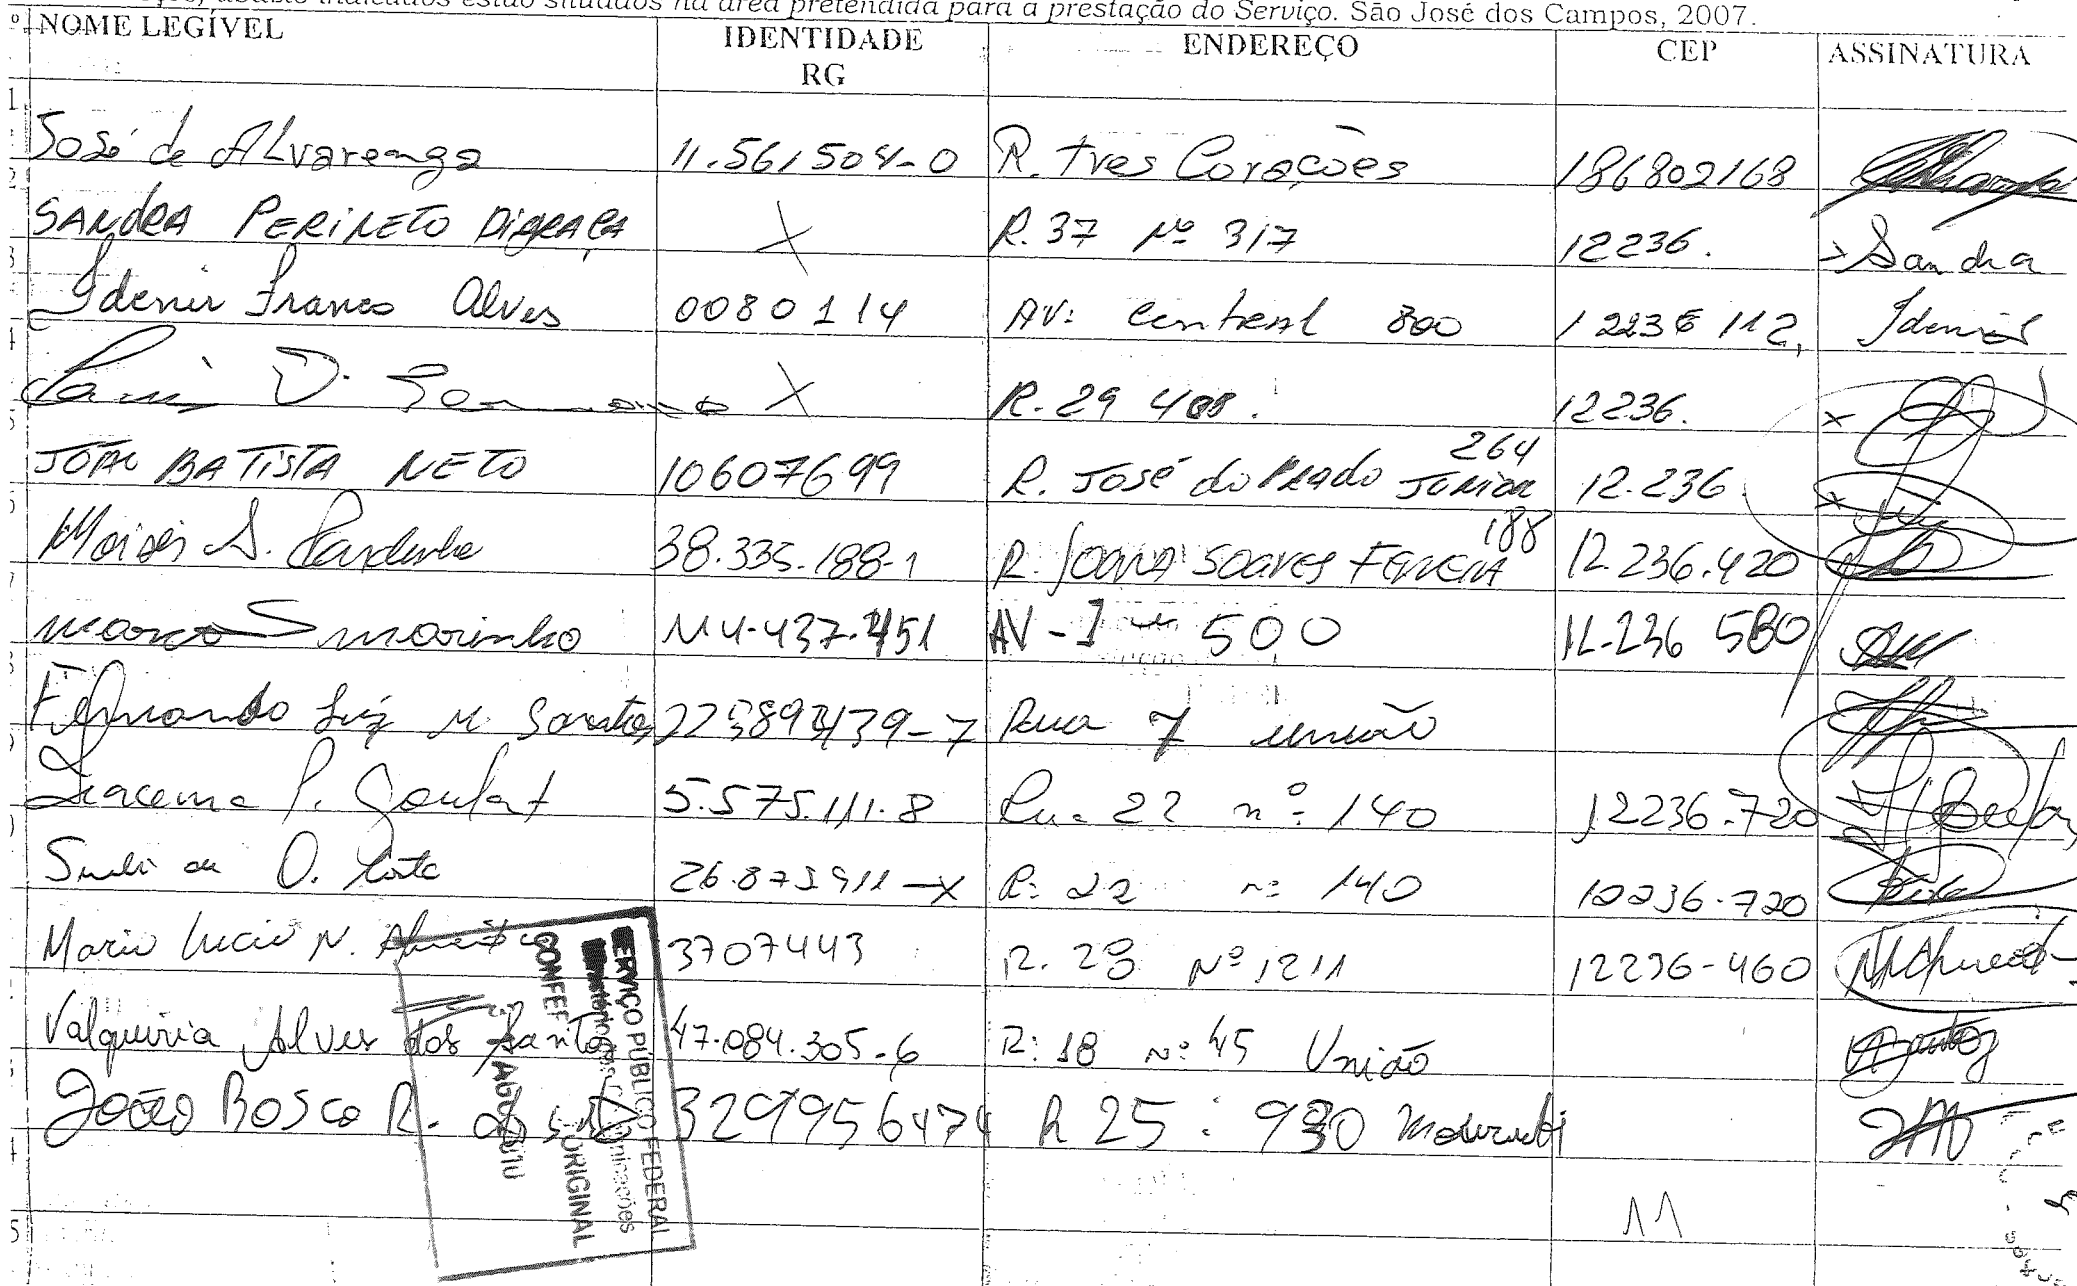 abaixo indicados estão situados na área pretendida para a prestação do Serviço. São José dos Campos, 2007.
NOME LEGÍVEL IDENTIDADE RG ENDEREÇO CEP ASSINATURA
1
José de Alvarenga 11.561504-0 R. tres Corações 186802168
2
SANDRA PERINETO 	X R. 37 Nº 317 12236. Sandra
3
Idenir Franco Alves 0080114 AV: Central 800 12236 112, Idenir
4
D. X R. 29 12236. x
5
JOÃO BATISTA NETO 10607699 R. José do Prado Junior 264 12.236. x
Moisés S. 38.335.188-1 R. JOANA SOARES FERREIRA 188 12.236.420
7
marco S marinho M4-437.451 AV - 500 12.236 580
Fernando Luiz M Santos Rua 7 união
Iracema P. Goulart 5.575.111.8 Rua 22 nº 140 12236-720
de O. Costa 26.873911-X R: 22 nº 140 12236-720
Mario Lucio N. Almeida 3707443 R. 28 Nº 1211 12236-460
Valquiria Alves dos Santos 47.084.305-6 R: 18 nº 45 União Santos
João Bosco R. 3299956474 R 25: 930
4
SERVIÇO PÚBLICO FEDERAL
Comunicações
CONFERE ORIGINAL
11
5